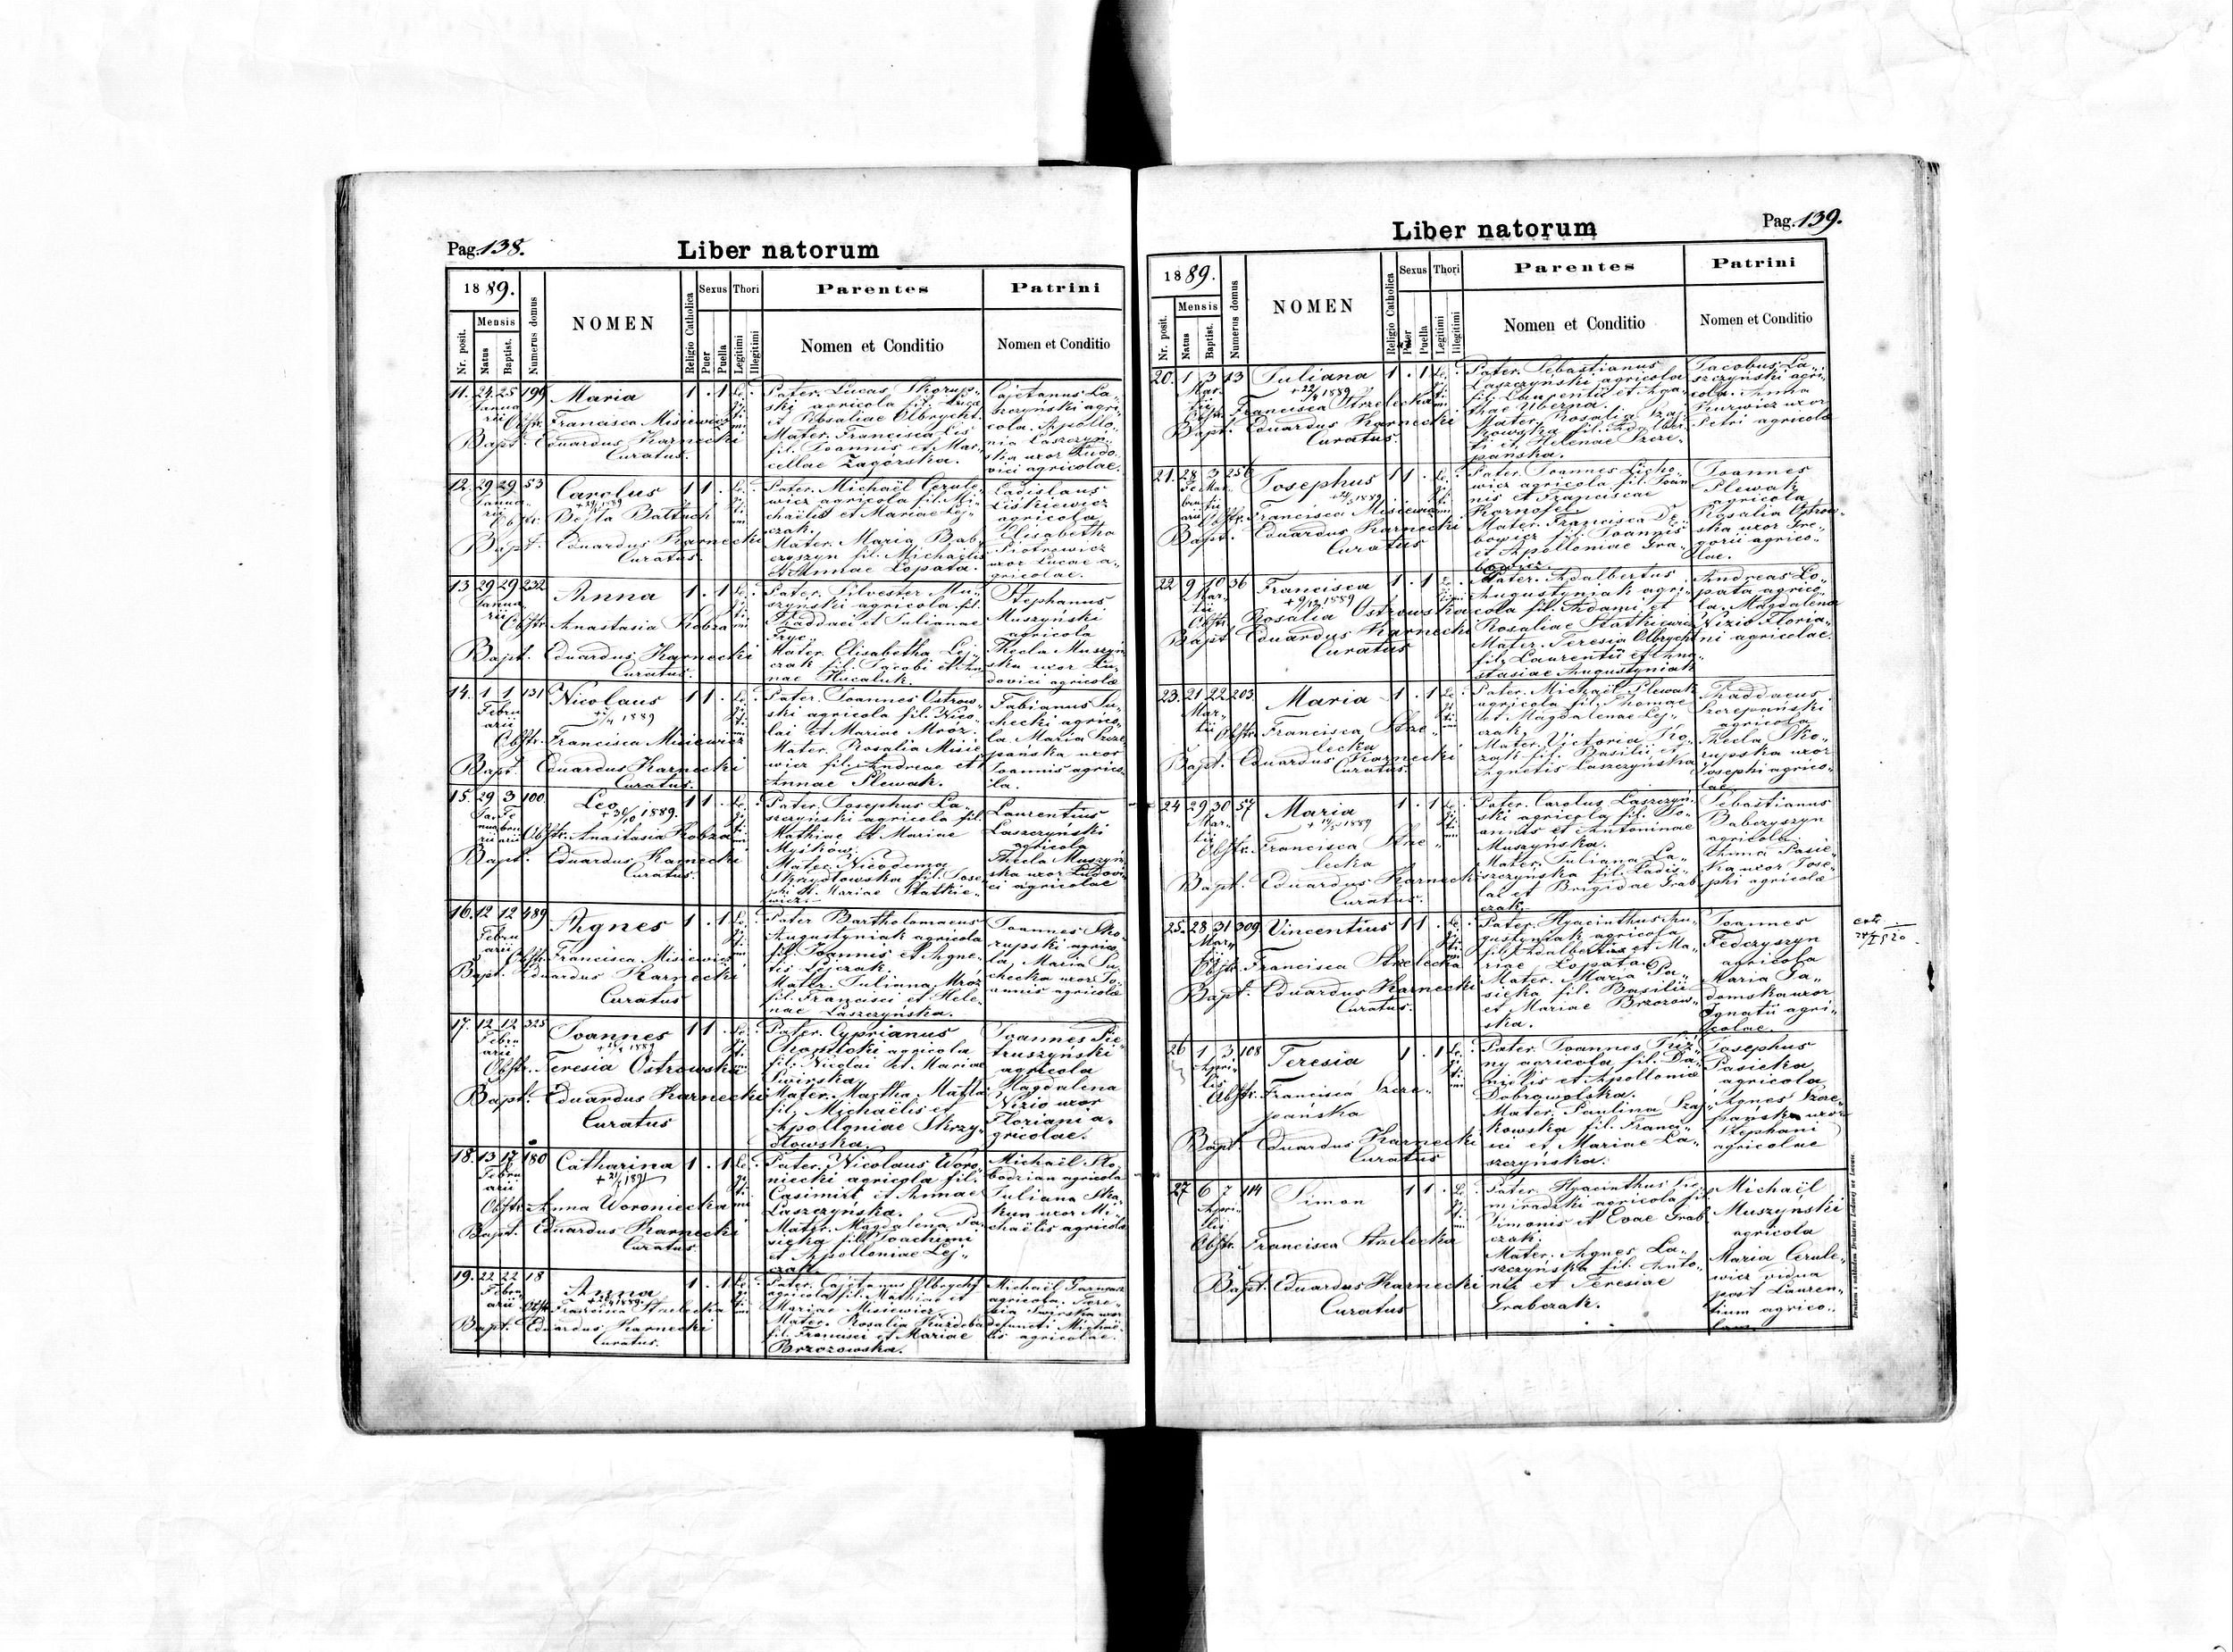 Pag. 138.
Liber natorum
1889.
Nr. posit.
Mensis
Natus
Baptist.
Numerus domus
NOMEN
Religio Catholica
Sexus
Puer
Puella
Thori
Legitimi
Illegitimi
Parentes
Nomen et Conditio
Patrini
Nomen et Conditio
11. 24 25 199 Maria 1 . 1
Januarii
Obstr. Francisca Misiewicz
Bapt. Eduardus Karnecki
Curatus.
Pater. Lucas Skorup„
ski agricola fil.
et Rosaliae Olbrycht.
Mater. Francisca Lis
fil. Joannis et Mar„
cellae Zagórska.
Cajetanus La„
szczyński agri„
cola. Apollo„
nia Laszczyn„
ska uxor Ludo„
vici agricolae.
12. 29 29 53 Carolus 1 1 .
Obstr. Bejla Baltuch
Bapt. Eduardus Karnecki
Curatus.
Pater. Michaël Cerule„
wicz agricola fil. Mi„
chaëlis et Mariae Lej„
czak.
Mater. Maria Bab„
czyszyn fil. Michaëlis
et Annae Lopata.
Ladislaus
Liskiewicz
agricola
Elisabetha
Piotrowicz
uxor Lucae a„
gricolae.
13 29 29 232 Anna 1 . 1
Obstr. Anastasia Kobza
Bapt. Eduardus Karnecki
Curatus.
Pater. Silvester Mu„
szyński agricola fil.
Thaddaei et Julianae
Fryc.
Mater. Elisabetha Lej„
czak fil. Jacobi et An
nae Hucaluk.
Stephanus
Muszyński
agricola
Thecla Muszyń
ska uxor Lu„
dovici agricolae
14. 1 1 131 Nicolaus 1 1 .
Obstr. Francisca Misiewicz
Bapt. Eduardus Karnecki
Curatus.
Pater. Joannes Ostrow„
ski agricola fil. Nico„
lai et Mariae Mróz.
Mater. Rosalia Misie
wicz fil. Andreae et
Annae Plewak.
Fabianus Su„
checki agrico„
la. Maria Szcze
pańska uxor
Joannis agrico„
la.
15. 29 3 100 Leo 1 1 .
1889.
Obstr. Anastasia Kobza
Bapt. Eduardus Karnecki
Curatus.
Pater. Josephus La„
szczyński agricola fil.
Mathiae et Mariae
Myśków.
Mater. Nicodema
Skrzydłowska fil. Jose„
phi et Mariae Statkie„
wicz.
Laurentius
Laszczyński
agricola
Thecla Muszyń
ska uxor Ludovi„
ci agricolae
16. 12 12 489 Agnes 1 . 1
Obstr. Francisca Misiewicz
Bapt. Eduardus Karnecki
Curatus
Pater Bartholomaeus
Augustyniak agricola
fil. Joannis et Agne„
tis Lejczak.
Mater. Julianna Mróz
fil. Francisci et Hele„
nae Laszczyńska.
Joannes Sko„
rupski agrico„
la. Maria Su„
checka uxor Jo„
annis agricolae
17. 12 12 325 Joannes 1 1 .
Obstr. Teresia Ostrowska
Bapt. Eduardus Karnecki
Curatus
Pater. Cyprianus
agricola
fil. Nicolai et Mariae
Świrska.
Mater. Martha Matla
fil. Michaëlis et
Apolloniae Skrzy„
dłowska.
Joannes Pie„
truszyński
agricola
Magdalena
Nizio uxor
Floriani a„
gricolae.
18. 13 17 180 Catharina 1 . 1
Obstr. Anna Woroniecka
Bapt. Eduardus Karnecki
Curatus.
Pater. Nicolaus Woro„
niecki agricola fil.
Casimiri et Annae
Laszczyńska.
Mater. Magdalena Pa„
sieka fil. Joachimi
et Apolloniae Lej„
czak.
Michaël Sło„
bodzian agricola
Juliana Ska„
kun uxor Mi„
chaëlis agricolae
19. 22 22 18 Anna 1 . 1
Obstr. Francisca Strzelecka
Bapt. Eduardus Karnecki
Curatus.
Pater. Cajetanus Olbrycht
agricola fil. Mathiae et
Mariae Misiewicz.
Mater. Rosalia Kuzdeba
fil. Francisci et Mariae
Brzozowska.
Michaël
agricola. Tere„
sia Świrska uxor
defuncti Michaë„
lis agricolae.
Pag. 139.
Liber natorum
1889.
Nr. posit.
Mensis
Natus
Baptist.
Numerus domus
NOMEN
Religio Catholica
Sexus
Puer
Puella
Thori
Legitimi
Illegitimi
Parentes
Nomen et Conditio
Patrini
Nomen et Conditio
20. 1 3 13 Juliana 1 . 1
Obstr. Francisca Strzelecka
Bapt. Eduardus Karnecki
Curatus.
Pater. Sebastianus
Laszczyński agricola
fil. Laurentii et Aga„
thae Uberna.
Mater. Rosalia Szaj„
kowska fil. Adalber„
ti et Helenae Szcze„
pańska.
Jacobus La„
szczyński agri„
cola. Anna
Kurwicz uxor
Petri agricolae
21. 28 3 256 Josephus 1 1 .
Obstr. Francisca Misiewicz
Bapt. Eduardus Karnecki
Curatus
Pater. Joannes Licho„
wicz agricola fil. Joan
nis et Franciscae
Karnofel.
Mater. Francisca Dę„
bowicz fil. Joannis
et Apolloniae Gra„
bowicz.
Joannes
Plewak
agricola
Rosalia Ostrow„
ska uxor Gre„
gorii agrico„
lae.
22 9 10 36 Francisca 1 . 1
+ 9/12 1889
Obstr. Rosalia Ostrowska
Bapt. Eduardus Karnecki
Curatus
Pater. Adalbertus
Augustyniak agri„
cola fil. Adami et
Rosaliae Statkiewicz
Mater. Teresia Olbrycht
fil. Laurentii et Ana„
stasiae Augustyniak
Andreas Lo„
pata agrico„
la. Magdalena
Nizio Floria„
ni agricolae.
23. 21 22 203 Maria 1 . 1
Obstr. Francisca Strze„
lecka
Bapt. Eduardus Karnecki
Curatus.
Pater. Michaël Plewak
agricola fil. Thomae
et Magdalenae Lej„
czak.
Mater. Victoria Ko„
zak fil. Basilii et
Agnetis Laszczyńska
Thaddaeus
Szczepański
agricola
Thecla Sko„
rupska uxor
Josephi agrico„
lae.
24 29 30 57 Maria 1 . 1
Obstr. Francisca Strze„
lecka
Bapt. Eduardus Karnecki
Curatus.
Pater. Carolus Laszczyń„
ski agricola fil. Jo„
annis et Antoninae
Muszyńska.
Mater. Juliana La„
szczyńska fil. Ladis„
lai et Brigidae Grab
czak.
Sebastianus
Babczyszyn
agricola.
Anna Pasie„
ka uxor Jose„
phi agricolae
25. 28 31 309 Vincentius 1 1 .
Obstr. Francisca Strzelecka
Bapt. Eduardus Karnecki
Curatus.
Pater. Hyacinthus Au„
gustyniak agricola
fil. Adalberti et Ma„
riae Lopata.
Mater. Maria Pa„
sieka fil. Basilii
et Mariae Brzozow„
ska.
Joannes
Fedczyszyn
agricola
Maria Sa„
domska uxor
Ignatii agri„
colae.
26 1 3 108 Teresia 1 . 1
Obstr. Francisca Szcze„
pańska
Bapt. Eduardus Karnecki
Curatus
Pater. Joannes
agricola fil. Da„
nielis et Apolloniae
Dobrowolska.
Mater. Paulina Szaj„
kowska fil. Franci„
sci et Mariae La„
szczyńska.
Josephus
Pasieka
agricola
Agnes Szcze„
pańska uxor
Stephani
agricolae
27 6 7 114 Simon 1 1 .
Obstr. Francisca Strzelecka
Bapt. Eduardus Karnecki
Curatus
Pater. Hyacinthus Sie„
miradzki agricola fil.
Simonis et Evae Grab
czak.
Mater. Agnes La„
szczyńska fil. Anto„
nii et Teresiae
Grabczak.
Michaël
Muszyński
agricola
Maria Cerule„
wicz vidua
post Lauren„
tium agrico„
lam.